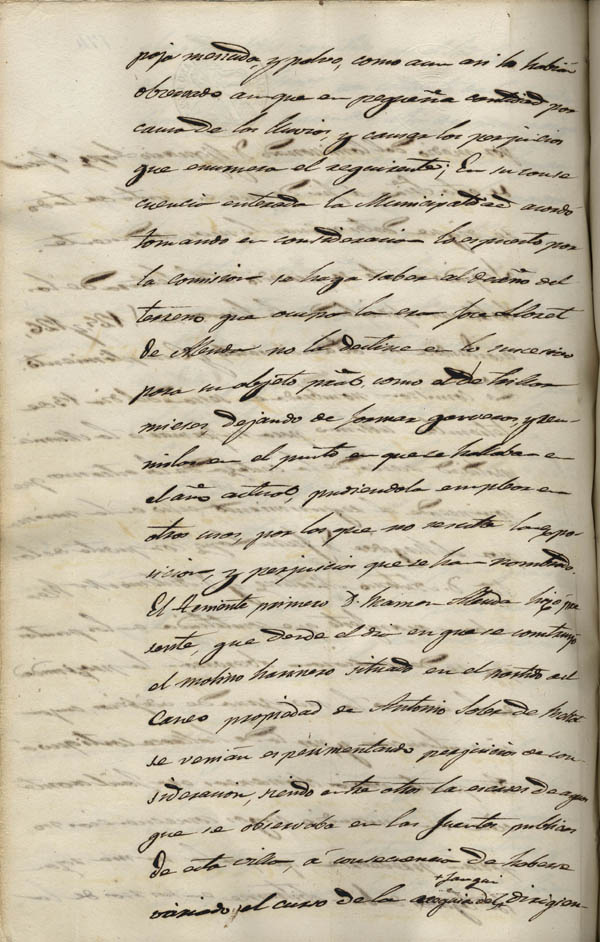 paja menuda, y polvo, como aun asi lo habian
observado aunque en pequeña cantidad por
causa de las lluvias, y causar los perjuicios
que enumera el requirente; En su conse
cuencia enterada la Municipalidad acordó
tomando en consideracion lo espuesto por
la comision se haga saber al dueño del
terreno que ocupa la era Jose Lloret
de Alenda no la destine en lo sucesivo
para su objeto como el de trillar
mieses, dejando de formar garveras, y reu-
nirlas en el punto en que se hallaban en
el año actual, pudiendola emplear en
otros usos, por los que no resulte la espo-
sicion, y perjuicios que se han nombrado.
El Teniente primero D. Ramon Alenda hizo pre
sente, que desde el dia en que se construyó
el molino harinero situado en el partido del
propiedad de Antonio Soler de
se venian esperimentando perjuicios de con-
sideracion, siendo entre otros la escases de aguas
que se observaba en las fuentes publicas
de esta villa, á consecuencia de haberse
variado el curso de la acequia del dirigien-